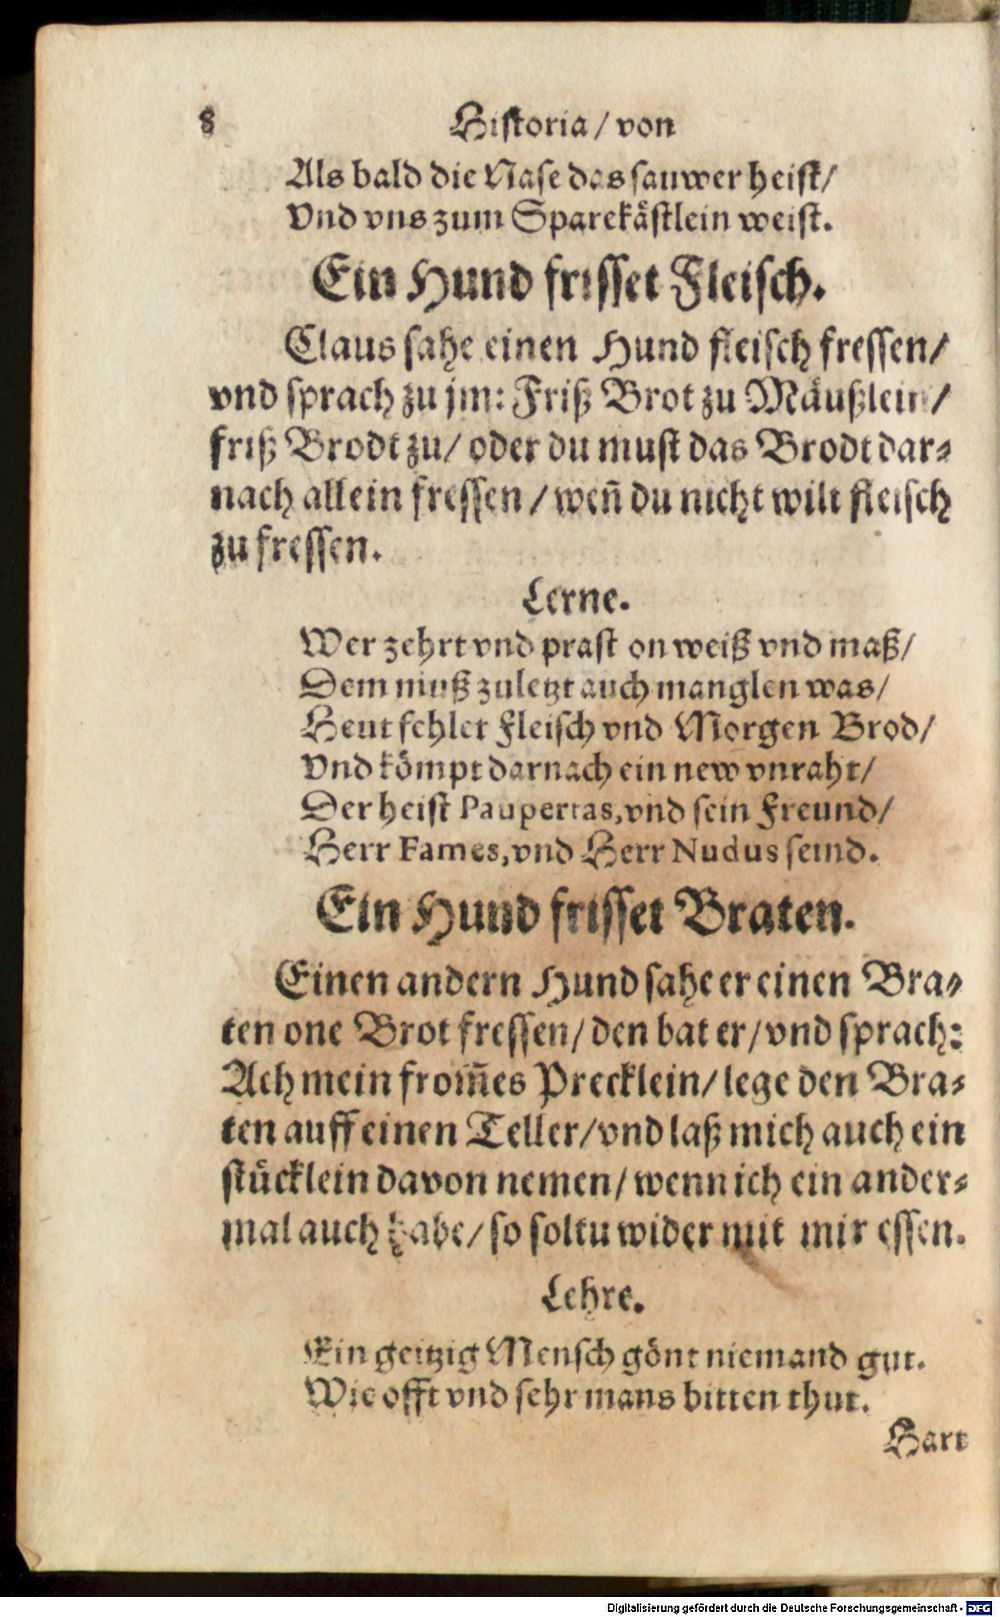 8 Historia / von
Als bald die Nase das sauwer heist /
Vnd vns zum Sparekästlein weist.
Ein Hund frisset Fleisch.
Claus sahe einen Hund fleisch fressen /
vnd sprach zu jm: Friß Brot zu Mäußlein /
friß Brodt zu / oder du must das Brodt dar⸗
nach allein fressen / weñ du nicht wilt fleisch
zu fressen.
Lerne.
Wer zehrt vnd prast on weiß vnd maß /
Dem muß zuletzt auch manglen was /
Heut fehlet Fleisch vnd Morgen Brod /
Vnd kömpt darnach ein new vnraht /
Der heist Paupertas, vnd sein Freund /
Herr Fames, vnd Herr Nudus seind.
Ein Hund frisset Braten.
Einen andern Hund sahe er einen Bra⸗
ten one Brot fressen / den bat er / vnd sprach:
Ach mein from̃es Precklein / lege den Bra⸗
ten auff einen Teller / vnd laß mich auch ein
stücklein davon nemen / wenn ich ein ander⸗
mal auch habe / so soltu wider mit mir essen.
Lehre.
Ein geitzig Mensch gönt niemand gut.
Wie offt vnd sehr mans bitten thut.
Hart
Digitalisierung gefördert durch die Deutsche Forschungsgemeinschaft - DFG